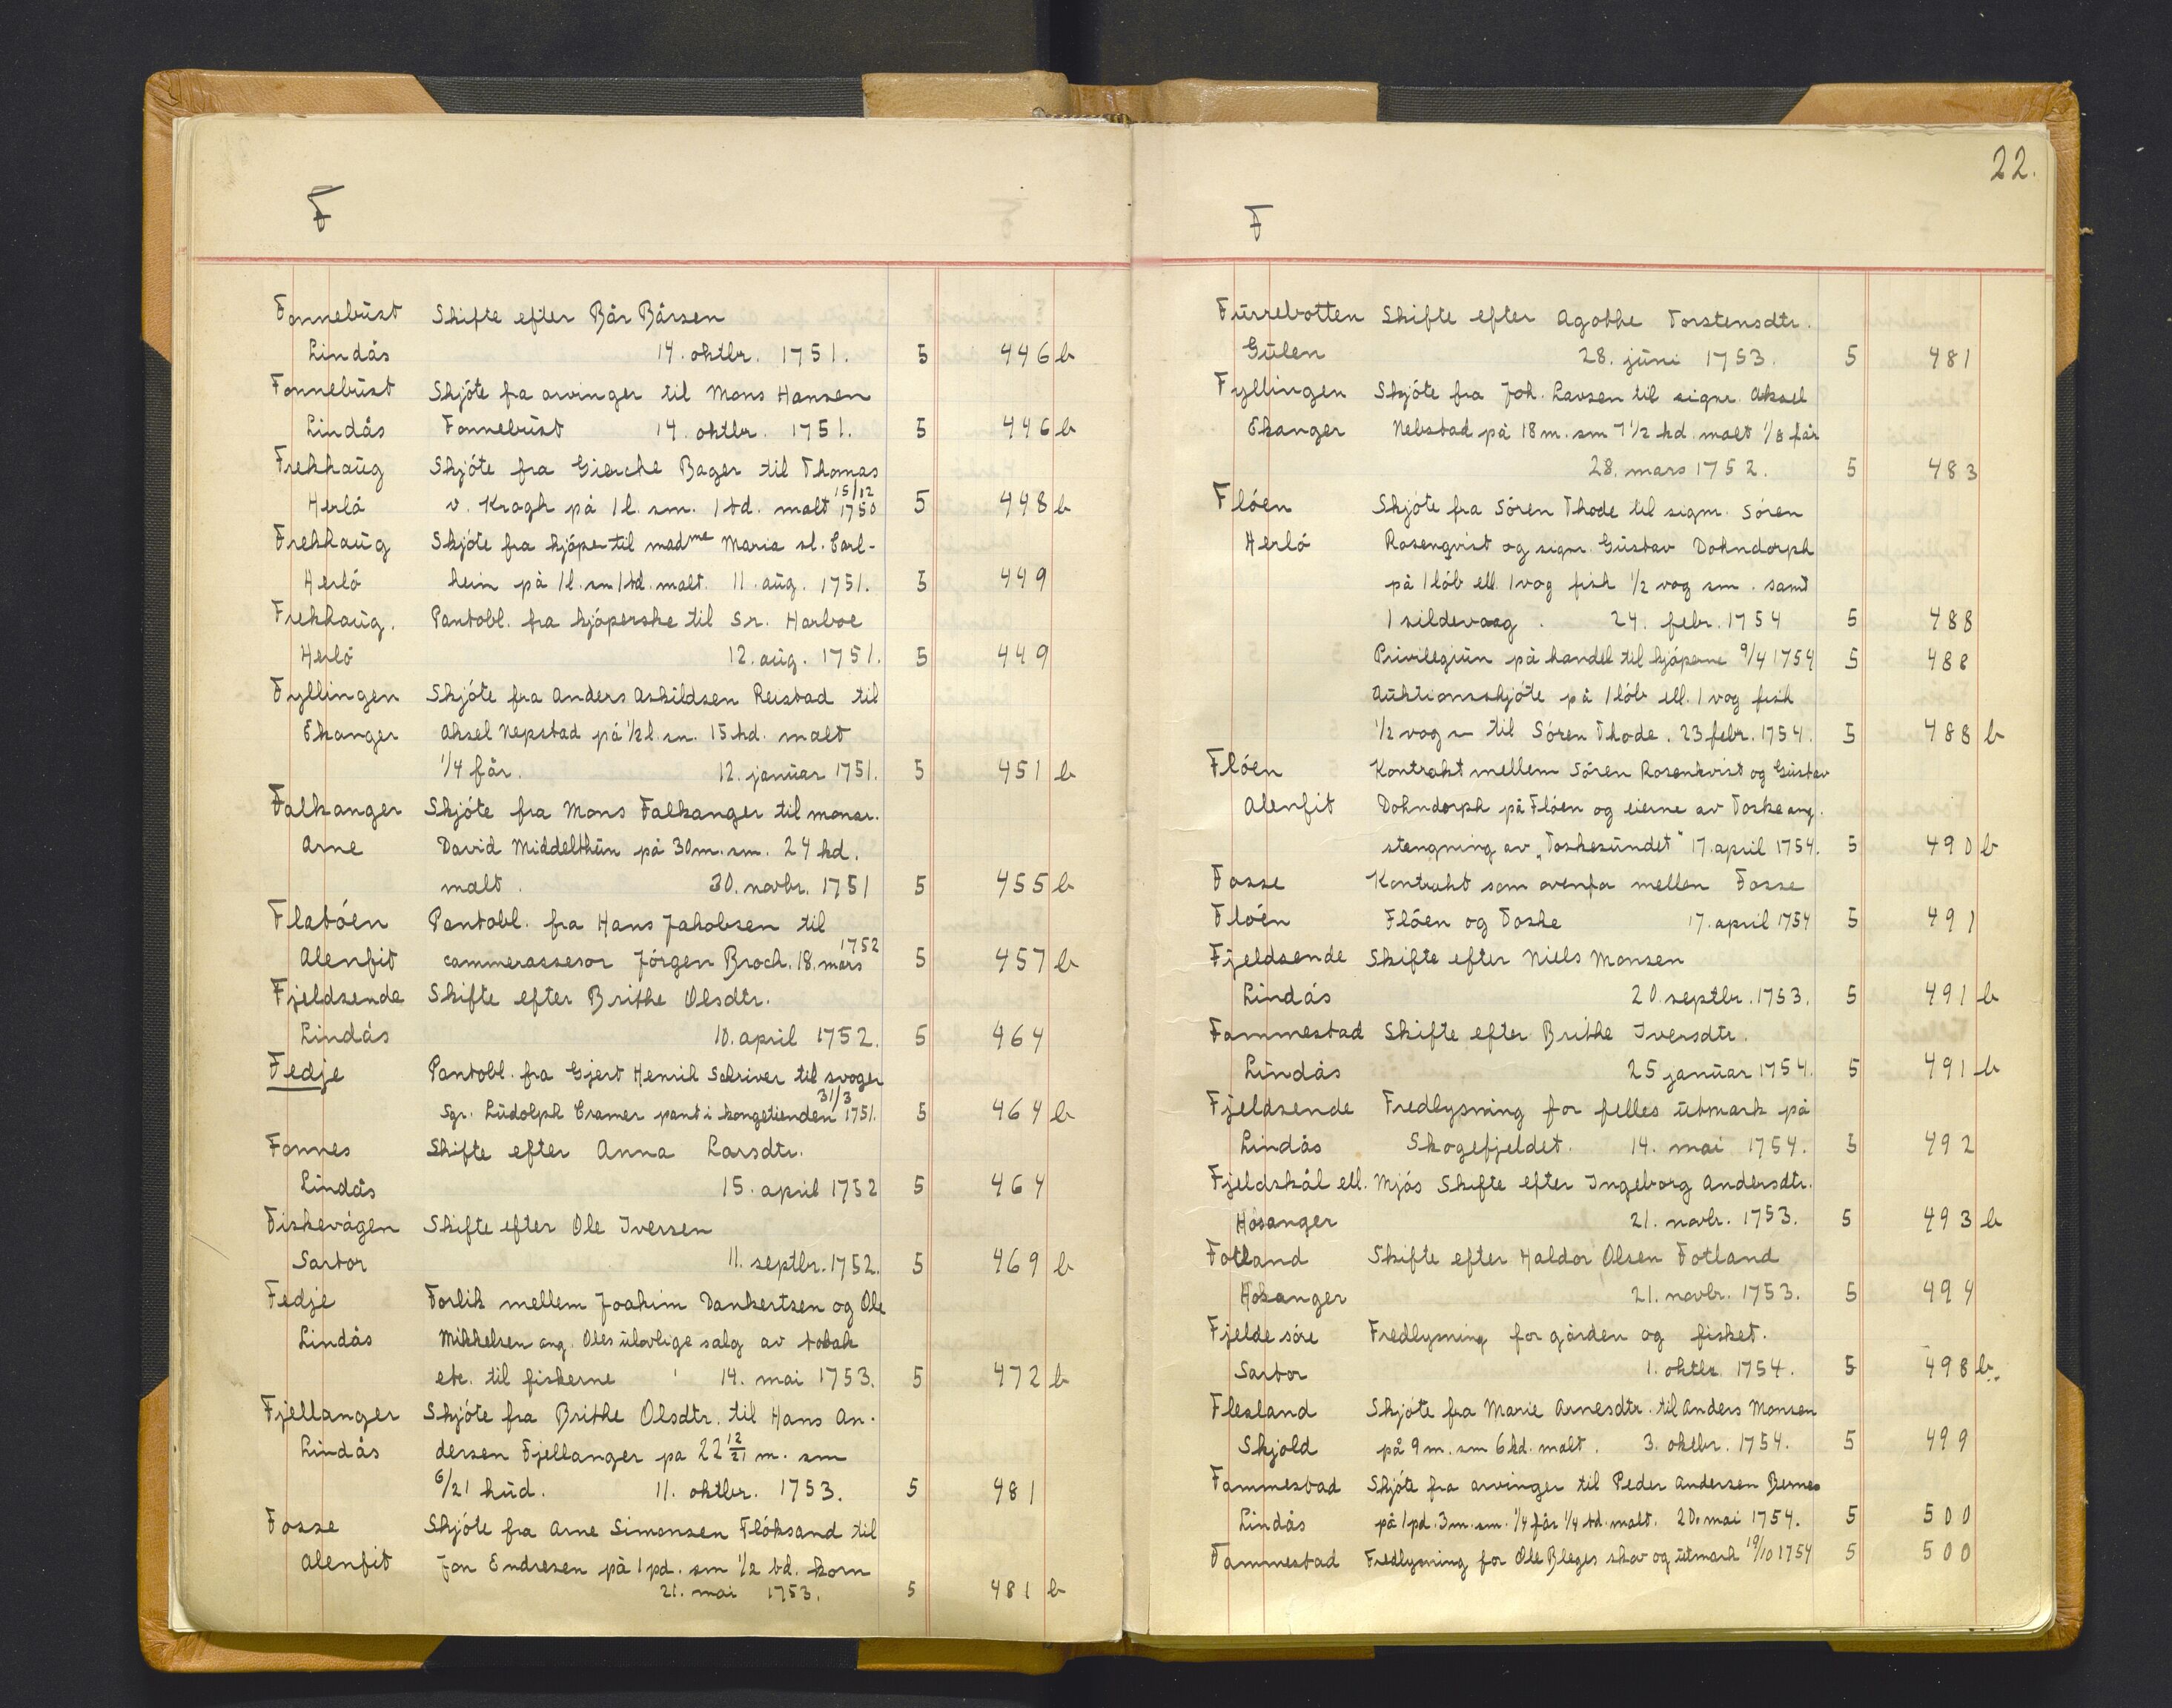 F
Fonnebust Skifte efter Bår Bårsen
Lindås 14. oktbr. 1751. 5 446 b
Fonnebust Skjöte fra arvinger til Mons Hansen
Lindås Fonnebust 14. oktbr. 1751. 5 446 b
Frekhaug Skjöte fra Gierche Bager til Thomas
Herlö v. Krogh på 1 l. sm. 1 td. malt 15/12 1750 5 448 b
Frekhaug Skjöte fra kjöper til madme Maria sl. Carl-
Herlö hein på 1 l. sm 1 td. malt. 11. aug. 1751. 5 449
Frekhaug. Pantobl. fra kjöperske til Sr. Harboe
Herlö 12. aug. 1751. 5 449
Fyllingen Skjöte fra Anders Askildsen Reistad til
Ekanger Aksel Nepstad på 1/2 l. sm. 15 kd. malt
1/4 får. 12. januar 1751. 5 451 b
Falkanger Skjöte fra Mons Falkanger til monsr.
Arne David Middelthun på 30 m. sm. 24 kd.
malt. 30. novbr. 1751 5 455 b
Flatöen Pantobl. fra Hans Jakobsen til
Alenfit cammerassesor Jörgen Broch. 18. mars 1752 5 457 b
Fjeldsende Skifte efter Brithe Olsdtr.
Lindås 10. april 1752. 5 464
Fedje Pantobl. fra Gjert Henrik Schriver til svoger
Sgr. Ludolph Cramer pant i kongetienden 31/3 1751. 5 464 b
Fonnes Skifte efter Anna Larsdtr.
Lindås 15. april 1752 5 464
Fiskevågen Skifte efter Ole Iversen
Sartor 11. septbr. 1752. 5 469 b
Fedje Forlik mellem Joakim Dankertsen og Ole
Lindås Mikkelsen ang. Oles ulovlige salg av tobak
etc. til fiskerne 14. mai 1753. 5 472 b
Fjellanger Skjöte fra Brithe Olsdtr. til Hans An-
Lindås dersen Fjellanger pa 22 12/21 m. sm
6/21 hud. 11. oktbr. 1753. 5 481
Fosse Skjöte fra Arne Simonsen Flöksand til
Alenfit Jon Endresen på 1 pd. sm 1/2 td. korn
21. mai 1753. 5 481 b
22.
F
Furrebotten Skifte efter Agothe Torstensdtr.
Gulen 28. juni 1753. 5 481
Fyllingen Skjöte fra Joh. Lavsen til signr. Aksel
Ekanger Nebstad på 18 m. sm 7 1/2 kd. malt 1/8 får
28. mars 1752. 5 483
Flöen Skjöte fra Sören Thode til signr. Sören
Herlö Rosenqvist og signr. Gustav Dohndorph
på 1 löb ell. 1 vog fisk 1/2 vog sm. samt
1 sildevaag. 24. febr. 1754 5 488
Privilegiun på handel til kjöperne 9/4 1754 5 488
Auktionsskjöte på 1 löb ell. 1 vog fisk
1/2 vog til Sören Thode. 23 febr. 1754. 5 488 b
Flöen Kontrakt mellem Sören Rosenkvist og Gustav
Alenfit Dohndorph på Flöen og eierne av Toske ang.
stengning av „Toskesundet" 17. april 1754. 5 490 b
Fosse Kontrakt som ovenfor mellen Fosse
Flöen Flöen og Toske 17. april 1754 5 491
Fjeldsende Skifte efter Niels Monsen
Lindås 20. septbr. 1753. 5 491 b
Fammestad Skifte efter Brithe Iversdtr.
Lindås 25 januar 1754. 5 491 b
Fjeldsende Fredlysning for felles utmark på
Lindås Skogefjeldet. 14. mai 1754. 5 492
Fjeldskål ell. Mjös Skifte efter Ingeborg Andersdtr.
Hosanger 21. novbr. 1753. 5 493 b
Fotland Skifte efter Haldor Olsen Fotland
Hosanger 21. novbr. 1753. 5 494
Fjelde söre Fredlysning for gården og fisket.
Sartor 1. oktbr. 1754. 5 498 b.
Flesland Skjöte fra Marie Arnesdtr. til Anders Monsen
Skjold på 9 m. sm 6 kd. malt. 3. oktbr. 1754. 5 499
Fammestad Skjöte fra arvinger til Peder Andersen Bernes
Lindås på 1 pd. 3 m. sm. 1/4 får 1/4 td. malt. 20. mai 1754. 5 500
Fammestad Fredlysning for Ole Bleges skov og utmark 19/10 1754 5 500